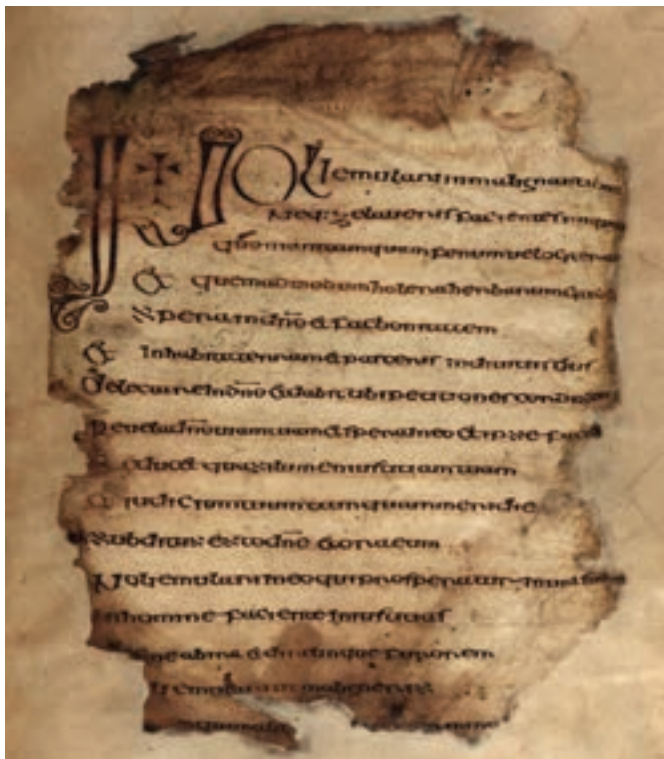 Noli emulari in malignantibus
neq: zelaueris facientes iniqui
quoniam tamquam fenum uelociter
et quemadmodum holera herbarum
spera in dno et fac bonitatem
et inhabita terram et pasceris in diuitiis eius
delectare in dno et dabit tibi petitiones cordis
reuela dno uiam tuam et spera in eo et ipse faciet
educet quasi lumen iustitiam tuam
et iudicium tuum tamquam meridie
subditus esto dno et ora eum
Noli emulari in eo qui prosperatur in uia
in homine faciente iniustitias
sine ab ira et derelinque furorem
li emulari ut maligneris